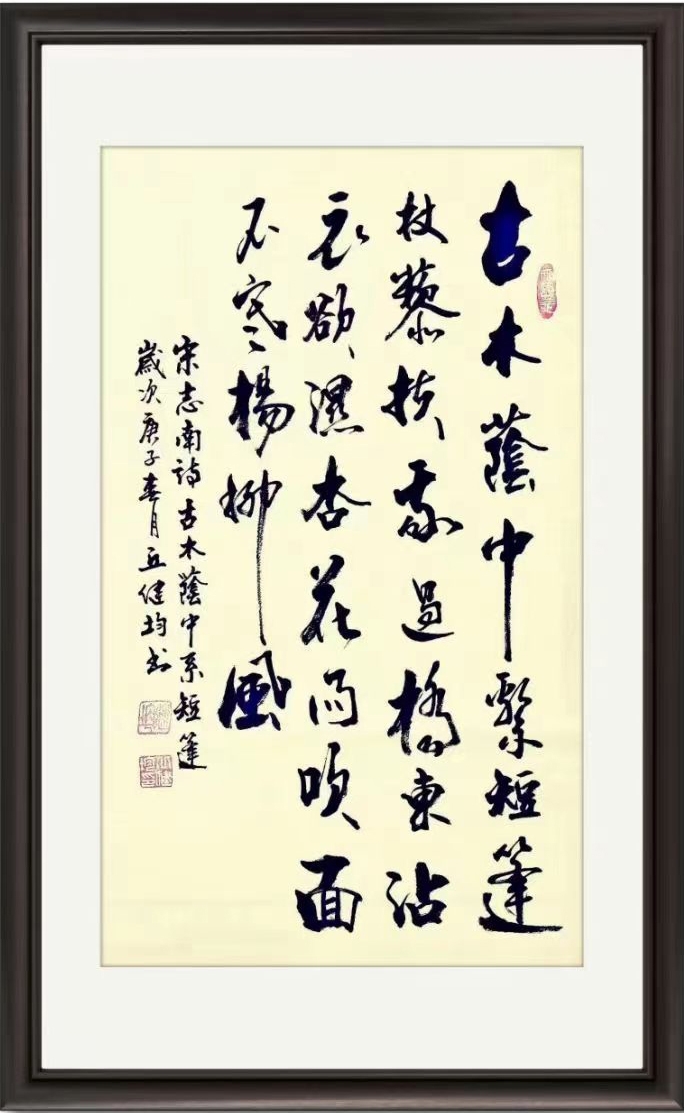 古木蔭中繫短篷
杖藜扶我過橋東沾
衣欲濕杏花雨吹面
不寒楊柳風
宋志南詩古木蔭中系短篷
歲次庚子春月丘健均书